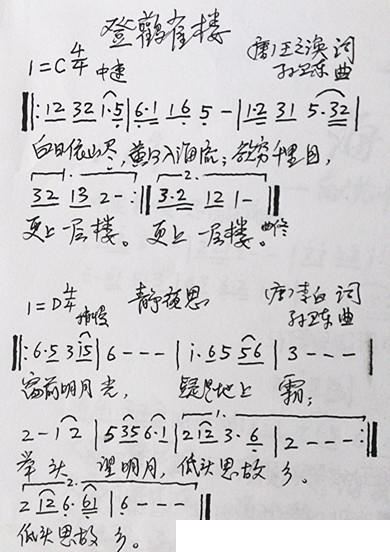 登鹳雀楼
1=C 4/4 中速 (唐)王之涣 词
孙卫东 曲
‖: 12 32 1·5 | 6·1 16 5 - | 1·2 31 5·32 |
白日依山尽,黄河入海流;欲穷千里目,
1. 32 13 2 - :‖ 2. 3·2 12 1 - ‖
更上一层楼。更上一层楼。曲终
1=D 4/4 稍慢 静夜思 (唐)李白 词
孙卫东 曲
‖: 6·5 3 15 | 6 - - - | i·6 5 56 | 3 - - - |
窗前明月光, 疑是地上 霜;
2 - 1 2 | 5 35 6·1 | 1. 2 12 3·6 | 2 - - - :‖
举头 望明月,低头思故 乡。
2. 2 12 6·61 | 6 - - - ‖
低头思故 乡。